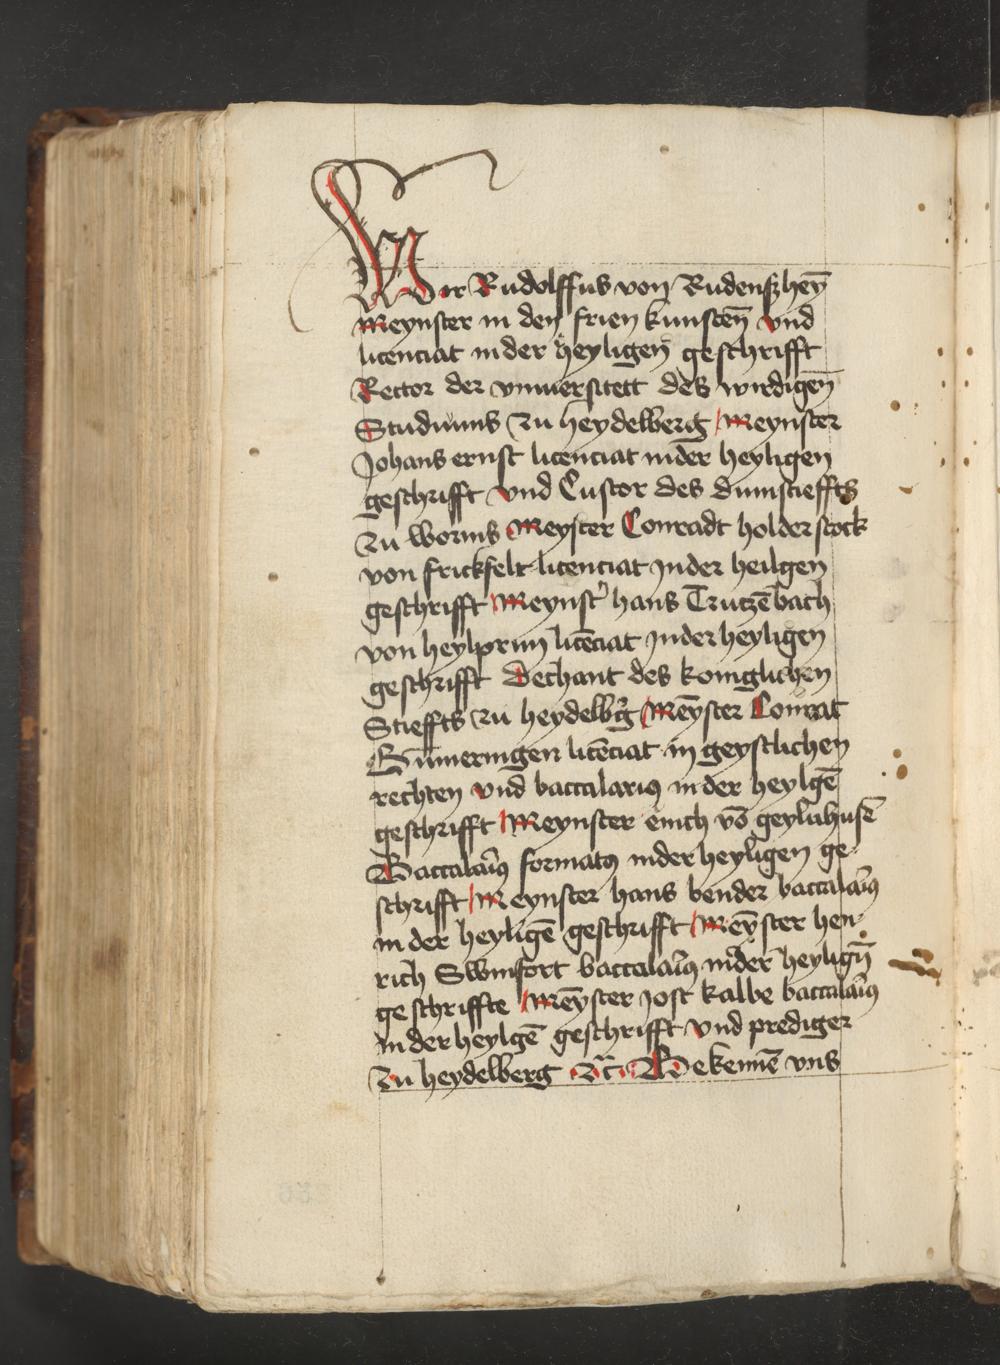 Wir Rudolffus von Rudenßheÿ
Meynster in den frien kunsten̄ vnd
licenciat in der heyligen geschrifft
Rector der vniuersitett des wirdigen̄
Studiums zu heydelberg Meynster
Johans ernst licenciat in der heyligen
geschrifft vnd Custor des dumstieffts
zu worms Meyster Conradt holderstock
von frickfelt licenciat jn der heilgen
geschrifft Meynst' hans Trutzēbach
von heylprun licēciat jn der heyligen
geschrifft dechant des koniglichen
Stieffts zu heydelb'g Mēyster Conrat
Gūmeringen licēciat in geystlichen
rechten vnd baccalariꝯ in der heylgē
geschrifft Meynster emich vō geylnhusē
Baccalaīꝯ formatꝯ in der heyligen ge-
schrifft Meynster hans bender baccalaīꝯ
in der heyligē geschrifft Mēyster hen-
rich Swinfort baccalaīꝯ in der heylign̄
geschriffte Mēyster jost kalbe baccalaīꝯ
in der heylgē geschrifft vnd prediger
zu heydelberg ꝛc̄ Bekennē vns